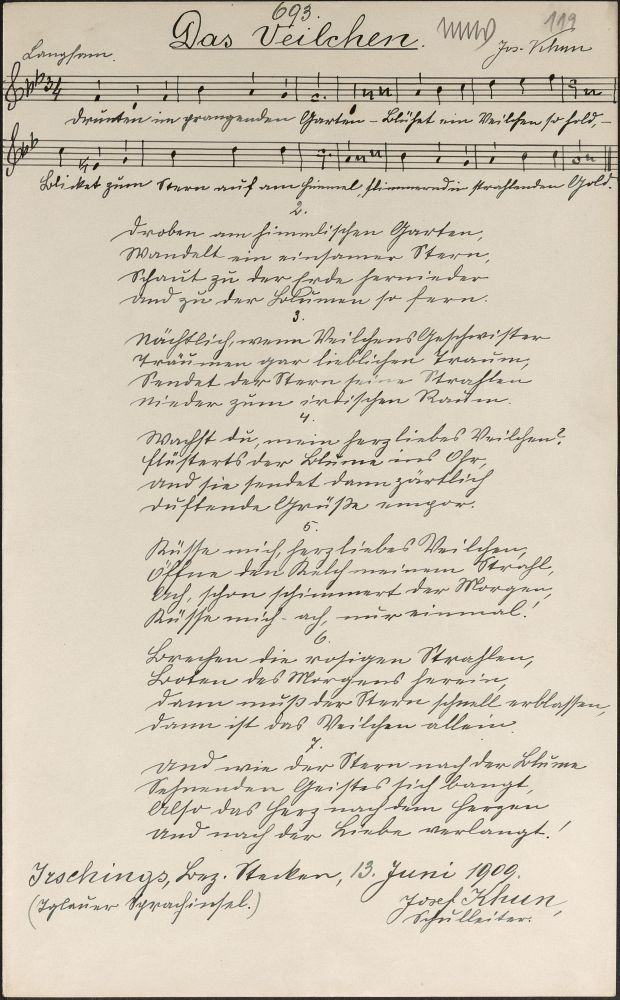 693.
119
Das Veilchen.
Langsam.
Jos. Khun
3/4
Drunten im prangenden Garten – Blühet ein Veilchen so hold, –
Blicket zum Stern auf am Himmel, flimmernd in strahlendem Gold.
2.
Droben am himmlischen Garten,
Wandelt ein einsamer Stern,
Schaut zu der Erde hernieder
Und zu der Blumen so fern.
3.
Nächtlich, wenn Veilchens Geschwister
Träumen gar lieblichen Traum,
Sendet der Stern seine Strahlen
Nieder zum irdischen Raum.
4.
Wachst du, mein herzliebes Veilchen?
Flüsterts der Blume ins Ohr,
Und sie sendet dann zärtlich
Duftende Grüße empor.
5.
Küsse mich, herzliebes Veilchen,
Öffne den Kelch meinem Strahl,
Ach, schon schimmert der Morgen,
Küsse mich - ach, nur einmal!
6.
Brechen die rosigen Strahlen,
Boten des Morgens herein,
Dann muß der Stern schnell erblassen,
Dann ist das Veilchen allein.
7.
Und wie der Stern nach der Blume
Sehnenden Geistes sich bangt,
Also das Herz nach dem Herzen
Und nach der Liebe verlangt!
Irschings, Bez. Stecken, 13. Juni 1909.
(Iglauer Sprachinsel.)
Josef Khun,
Schulleiter.